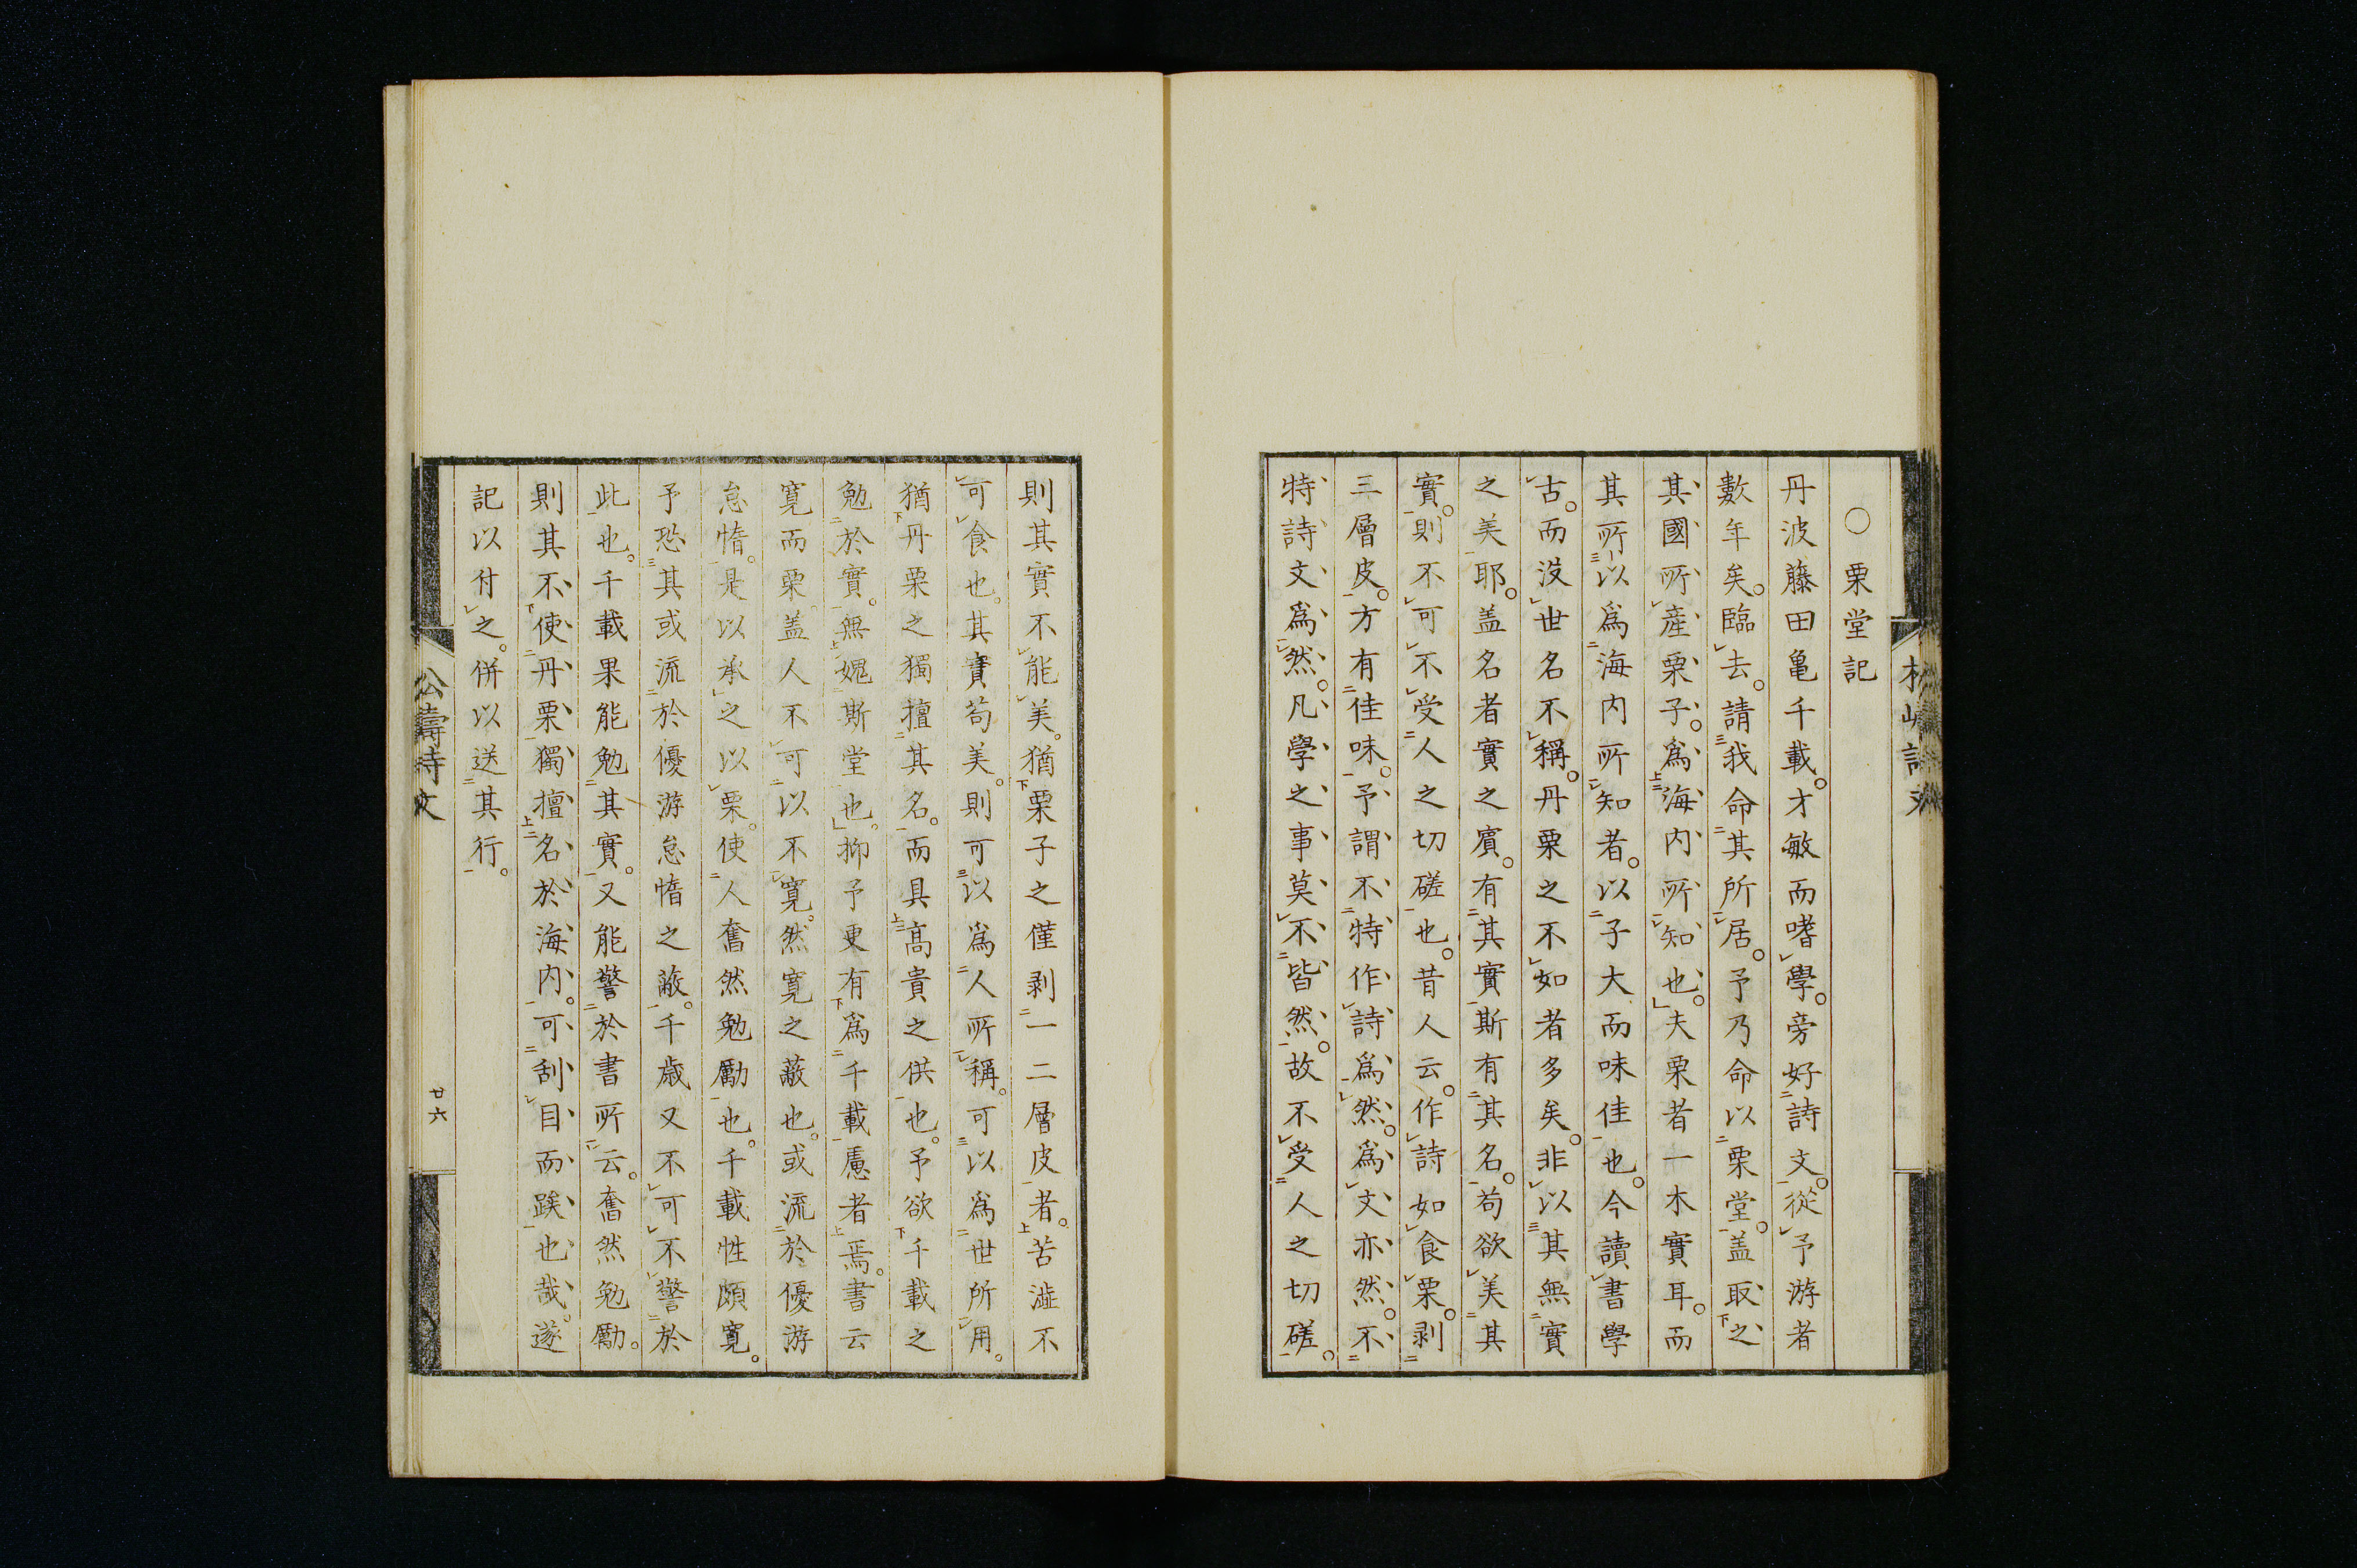 ○栗堂記
丹波藤田亀千載。才敏而嗜學。旁好詩文。從予游者
數年矣。臨去。請我命其所居。予乃命以栗堂。盖取之
其國所産栗子。爲海内所知也。夫栗者一木實耳。而
其所以爲海内所知者。以子大而味佳也。今讀書學
古。而沒世名不稱。丹粟之不如者多矣。非以其無實
之美耶。盖名者實之賓。有其實斯有其名。苟欲美其
實。則不可不受人之切磋也。昔人云。作詩如食栗。剥
三層皮。方有佳味。予謂不特作詩爲然。爲文亦然。不
特詩文爲然。凡學之事莫不皆然。故不受人之切磋。
則其實不能美。猶栗子之僅剥一二層皮者。苦澁不
可食也。其實苟美。則可以爲人所稱。可以爲世所用。
猶丹栗之獨擅其名。而具髙貴之供也。予欲千載之
勉於實。無媿斯堂也。抑予更有爲千載慮者焉。書云
寛而栗。盖人不可以不寛。然寛之蔽也。或流於優游
怠惰。是以承之以栗。使人奮然勉勵也。千載性頗寛。
予恐其或流於優游怠惰之蔽。千歳又不可不警於
此也。千載果能勉其實。又能警於書所云。奮然勉勵。
則其不使丹栗獨擅名於海内。可刮目而蹊也哉。遂
記以付之。併以送其行。
公壽詩文
廿六